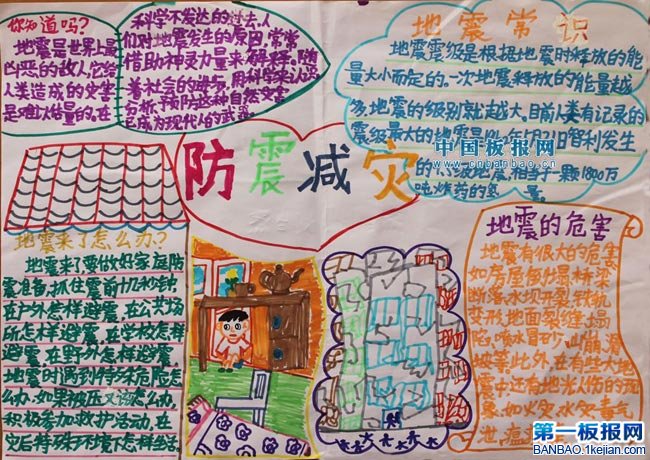 你知道吗?
地震是世界上最
凶恶的敌人,它给
人类造成的灾害
是难以估量的。在
科学不发达的过去,人
们对地震发生的原因,常常
借助神灵力量来解释。随
着社会的进步,用科学来认识
分析、预防这种自然灾害
已成为现代人的武器。
地震常识
地震震级是根据地震时释放的能
量大小而定的。一次地震释放的能量越
多,地震的级别就越大。目前人类有记录的
震级最大的地震是 年5月21日智利发生
的 级地震,相当于一颗1800万
吨炸药的 量。
中国板报网
www.cnbanbao.cn
防震减灾
地震来了怎么办?
地震来了要做好家庭防
震准备,抓住震前十几秒钟,
在户外怎样避震,在公共场
所怎样避震,在学校怎样
避震,在野外怎样避震,
地震时遇到特殊危险怎
么办,如果被压又该怎么办,
积极参加救护活动,在
灾后特殊环境下怎样生活。
地震的危害
地震有很大的危害
如房屋倒塌,桥梁
断落,水坝开裂,铁轨
变形,地面裂缝,塌
陷,喷水冒砂,山崩,滑
坡等,此外,在有些大地
震中,还有地光 伤的现
象,如火灾,水灾,毒气
泄,瘟
第一板报网
BANBAO.1kejian.com